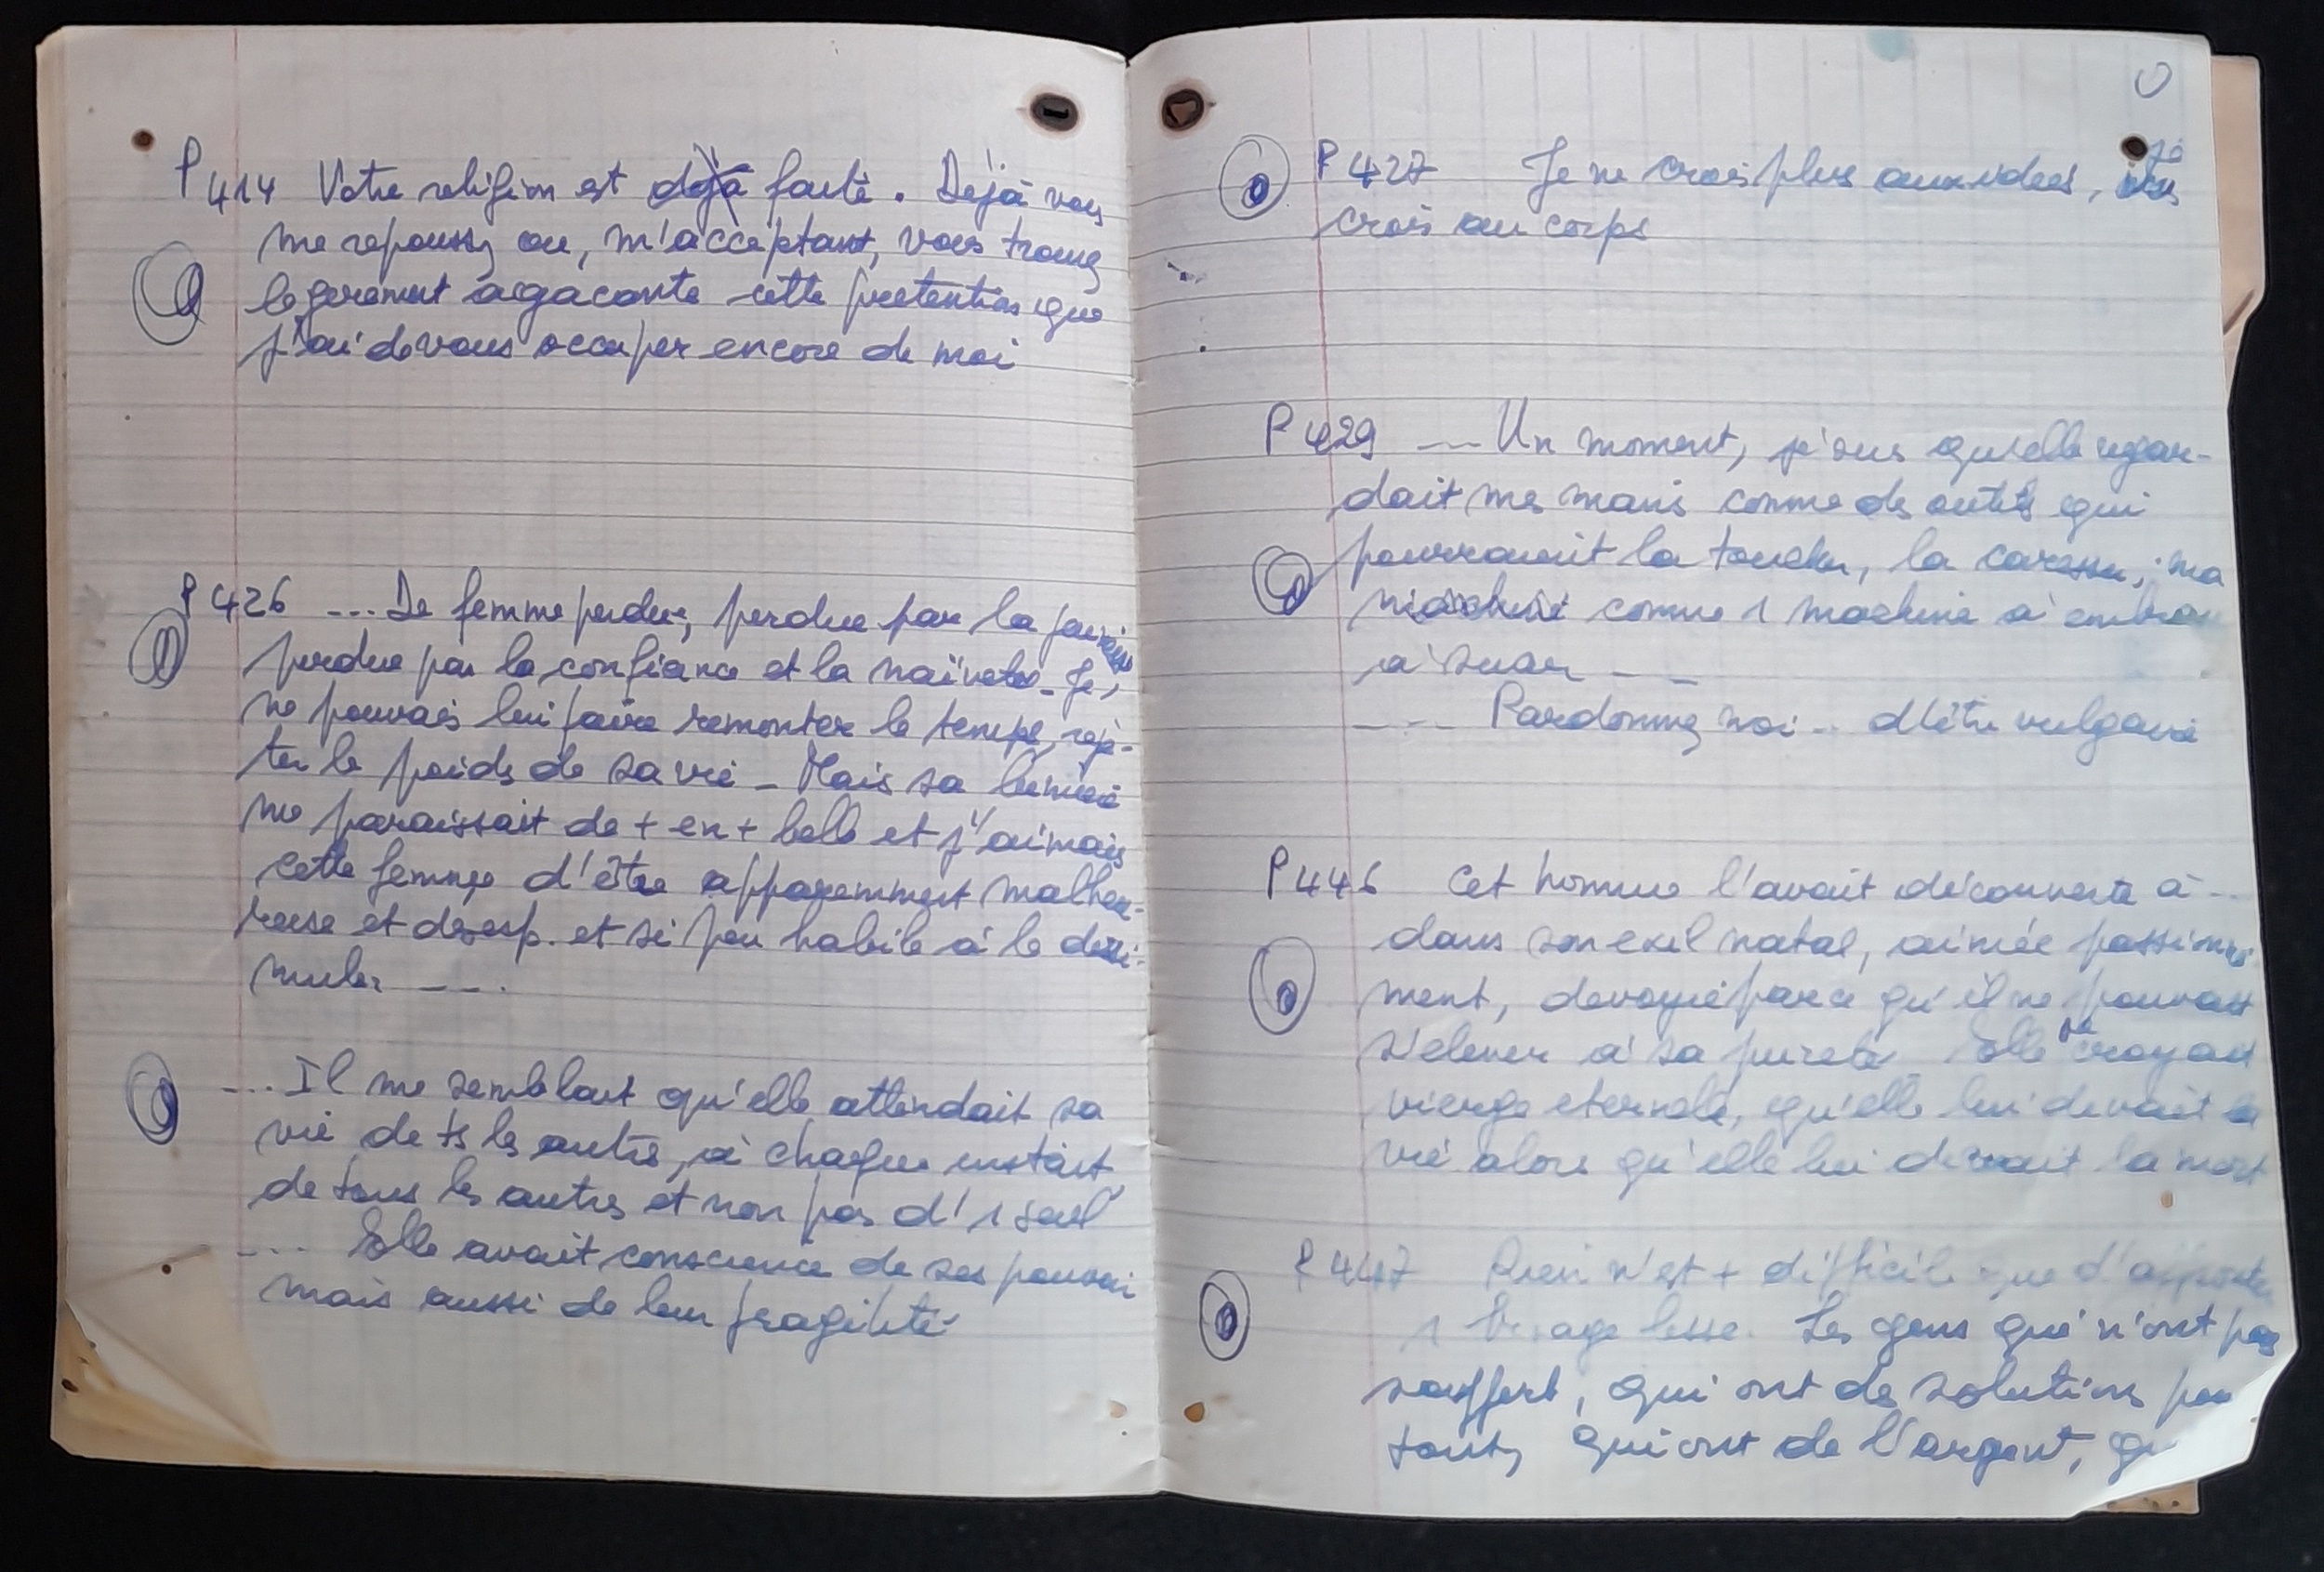 P 414 Votre religion est déjà faite. Déjà vous
me repoussez ou, m'acceptant, vous trouvez
legerement agacante cette pretention que
j'ai de vous occuper encore de moi
P 426 ... De femme perdue, perdue par la
perdue par la confiance et la naïveté - Je
ne pouvais lui faire remonter le temps, reje-
ter le poids de sa vie - Mais sa lumière
me paraissait de + en + belle et j'aimais
cette femme d'être apparemment malheu-
reuse et desesp. et si peu habile à le dissi-
muler ---.
... Il me semblait qu'elle attendait sa
vie de ts les autres, à chaque instant
de tous les autres et non pas d'1 seul
... Elle avait conscience de ses pouvoirs
mais aussi de leur fragilité
P 427 Je ne crois plus aux idées, je
crois au corps
P 429 --- Un moment, je sus qu'elle regar-
dait mes mains comme des outils qui
pourraient la toucher, la caresser, ma
comme 1 machine à
à suer ---
---- Pardonnez moi .. d'être vulgaire
P 446 Cet homme l'avait découverte à ...
dans son exil natal, aimée passionné
ment, devoyée parce qu'il ne pouvait
s'elever à sa pureté. Elle se croyait
vierge eternelle, qu'elle lui devait la
vie alors qu'elle lui devait la mort
P 447 Rien n'est + difficile que d'affronter
1 visage lisse. Les gens qui n'ont pas
souffert, qui ont des solutions pour
tout, qui ont de l'argent, qu